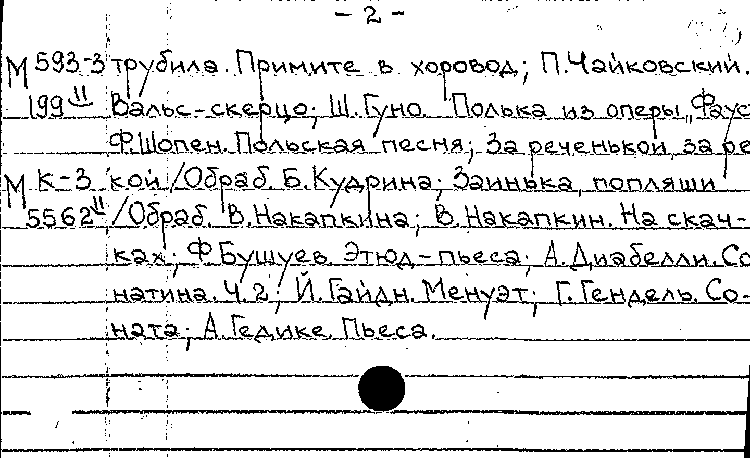 - 2 -
М 593-3 трубила. Примите в хоровод; П.Чайковский.
199 II Вальс-скерцо; Ш.Гуно. Полька из оперы „Фаус
Ф.Шопен. Польская песня; За реченькой, за ре
М К-3 кой /Обраб. Б.Кудрина; Заинька, попляши
5562 II /Обраб. В.Накапкина; В.Накапкин. На скач-
ках; Ф.Бушуев. Этюд-пьеса; А.Диабелли. Со
натина. Ч.2; Й.Гайдн. Менуэт; Г.Гендель. Со-
ната; А.Гедике. Пьеса.